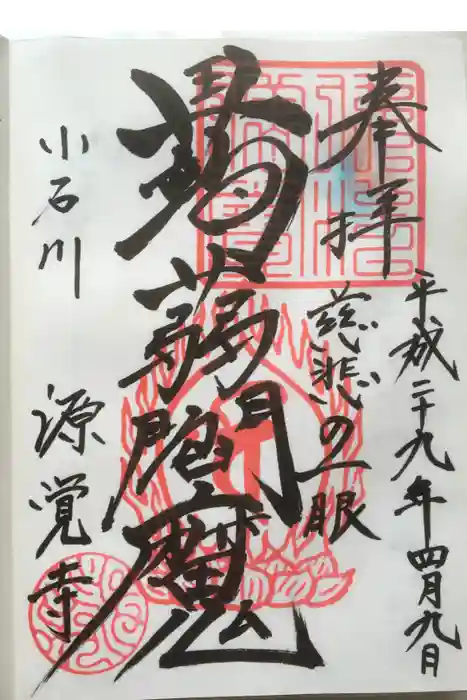 奉拝
平成二十九年四月九日
慈悲の一眼
蒟蒻閻魔
小石川
源覚寺